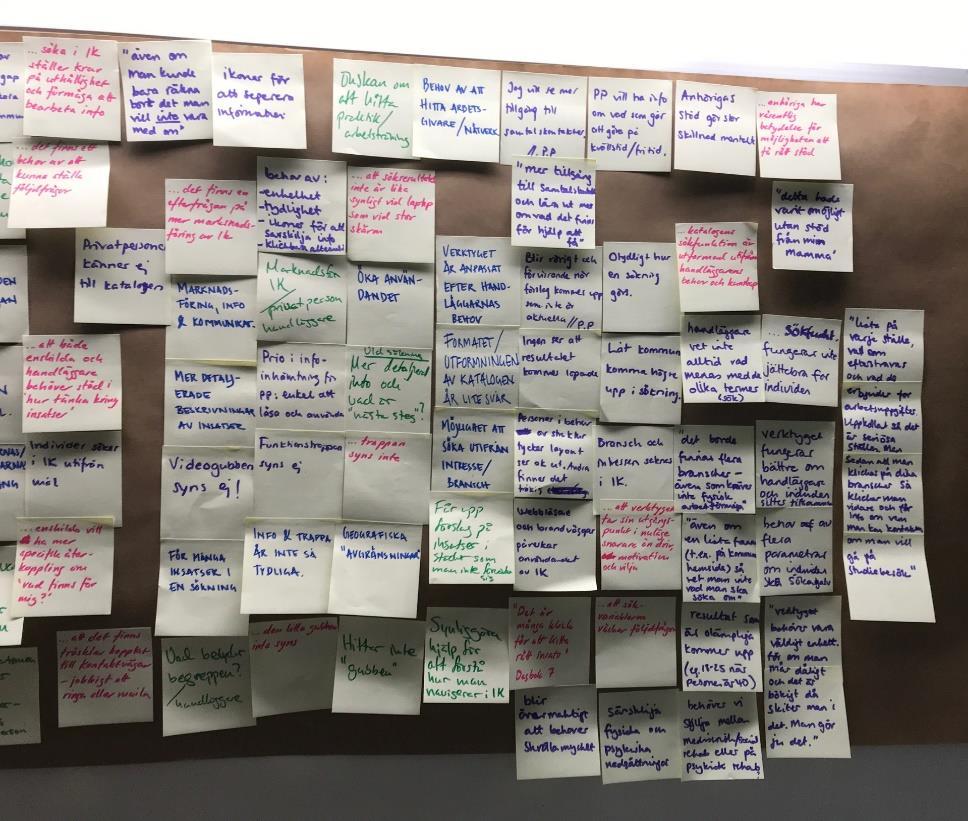 ... söka i IK
ställer krav
på uthållighet
och förmåga att
bearbeta info
"även om
man kunde
bara räkna
bort det man
vill inte vara
med om"
ikoner för
att separera
information
Önskan om
att hitta
praktik/
arbetsträning
BEHOV AV ATT
HITTA ARBETS-
GIVARE/NÄTVERK
Jag vill se mer
tillgång till
samtalskontakter.
// P.P
PP vill ha info
om vad som gör
att göra på
kvällstid/fritid.
Anhörigas
stöd gör stor
skillnad mentalt
... anhöriga har
väsentlig
betydelse för
möjligheten att
få rätt stöd
... det finns ett
behov av att
kunna ställa
följdfrågor
... det finns en
efterfrågan på
mer marknads-
föring av IK
behov av:
-enhetlighet
-tydlighet
-ikoner för att
särskilja info
... att sökresultatet
inte är lika
synligt vid laptop
som vid stor
skärm
"mer tillgång
till samtalsstöd
och lära ut mer
om vad det finns
för hjälp att
få"
"detta hade
varit omöjligt
utan stöd
från min
mamma"
Privatpersoner
känner ej
till katalogen
MARKNADS-
FÖRING, INFO
& KOMMUNIKAT.
Marknadsför
IK
/privatperson
handläggare
ÖKA ANVÄN-
DANDET
VERKTYGET
ÄR ANPASSAT
EFTER HAND-
LÄGGARNAS
BEHOV
Blir rörigt och
förvirrande när
förslag kommer upp
som inte är
aktuella // P.P
Otydligt hur
en sökning
görs.
... katalogens
sökfunktion är
utformad utifrån
handläggarens
behov och kunskap
... att både
enskilda och
handläggare
behöver stöd i
'hur tänka kring
insatser'
MER DETALJ-
ERADE
BESKRIVNINGAR
AV INSATSER
Prio i info-
inhämtning för
PP: enkel att
läsa och använda
Vid sökning
Mer detaljerad
info och
vad är
"nästa steg"?
FORMATET/
UTFORMNINGEN
AV KATALOGEN
ÄR LITE SVÅR
Ingen ser att
resultatet
kommer löpande
Låt kommun
komma högre
upp i sökning.
handläggare
vet inte
alltid vad
menas med de
olika termer
(sök)
... sökfunkt.
fungerar inte
jättebra för
individen
"Lista på
varje ställe,
vad som
eftersträvas
och vad de
erbjuder för
arbetsuppgifter.
Uppdelad så det
är seriösa
ställen. Men
sedan att man
klickar på dina
branscher så
klickar man
vidare och får
info om vem
man kan kontakta
om man vill
gå på
studiebesök"
Individer söker
i IK utifrån
mål
Videogubben
syns ej!
Funktionstrappan
syns ej
... trappan
syns inte
MÖJLIGHET ATT
SÖKA UTIFRÅN
INTRESSE/
BRANSCH
Personer i behov
av struktur
tycker layout
ser ok ut. Andra
finner det
rörigt
Bransch och
intressen saknas
i IK.
"det borde
finnas flera
branscher -
även som kräver
inte fysisk
arbetsförmåga"
verktyget
fungerar
bättre om
handläggare
och individen
sitter tillsammans
... enskilda vill
ha mer
specifik åter-
koppling om
'vad finns för
mig?'
FÖR MÅNGA
INSATSER I
EN SÖKNING
INFO & TRAPPA
ÄR INTE SÅ
TYDLIGA.
GEOGRAFISKA
"AVGRÄNSNINGAR"
Får upp
förslag på
insatser i
städer som
man inte
Webbläsare
och brandväggar
påverkar
användandet
av IK
... att verktyget
tar sin utgångs-
punkt i nuläge
snarare än driv,
motivation
och vilja
"även om
en lista fanns
(t.ex. på kommunens
hemsida) så
vet man inte
vad man ska
söka om"
behov av
flera
parametrar
om individen
ska söka själv
... att det finns
trösklar kopplat
till kontaktvägar
- jobbigt att
ringa eller maila
Vad betyder
begreppen?
/handläggare
... den lilla gubben
inte syns
Hittar inte
"gubben"
Synliggöra
hjälp för
att förstå
hur man
navigerar i IK
"Det är
många klick
för att hitta
rätt insats"
Dagbok 7
... att sök-
variablerna
väcker följdfrågor
resultat som
är olämpliga
kommer upp
(eg. 18-25 när
personen är 40)
"verktyget
behöver vara
väldigt enkelt.
för om man
mår dåligt
och det är
bökigt då
skiter man i
det. Man gör
ju det."
blir
övermäktigt
att behöva
skrolla mycket
särskilja
fysiska och
psykiska
nedsättningar
behöver vi
skilja mellan
medicinsk/social
rehab eller på
psykisk rehab